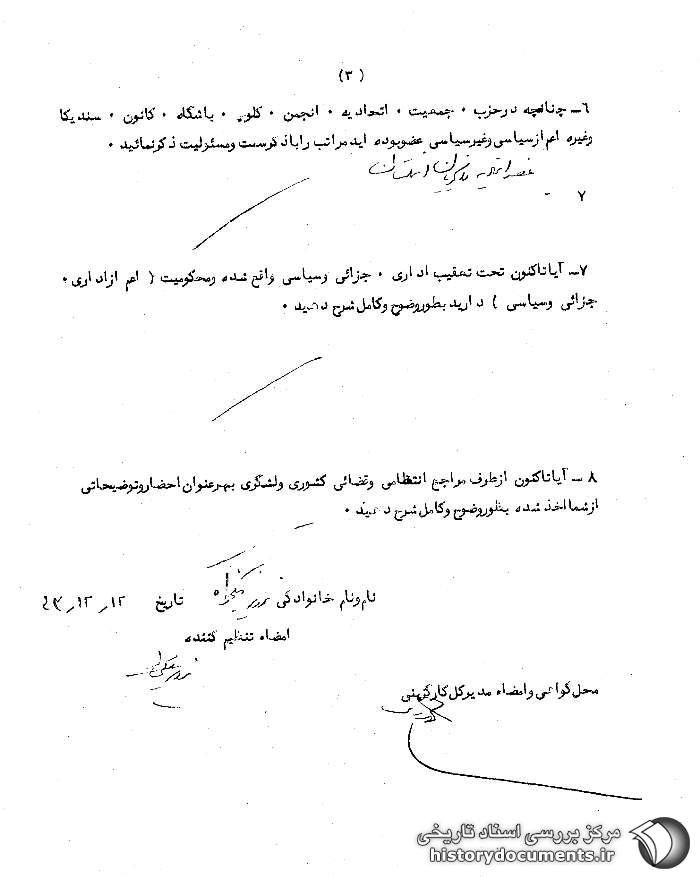 (۳)
۶ـ چنانچه در حزب ۰ جمعیت ۰ اتحادیه ۰ انجمن ۰ کلوپ ۰ باشگاه ۰ کانون ۰ سندیکا
وغیره اعم از سیاسی وغیرسیاسی عضو بوده اید مراتب را با ذکر سمت ومسئولیت ذکر نمائید ۰
۷ -
۷ـ آیا تاکنون تحت تعقیب اداری ۰ جزائی وسیاسی واقع شده ومحکومیت ( اعم از اداری ۰
جزائی وسیاسی ) دارید بطور وضوح وکامل شرح دهید ۰
۸ ـ آیا تاکنون ازطرف مراجع انتظامی وقضائی کشوری ولشگری بهرعنوان احضار وتوضیحاتی
ازشما اخذ شده بطور وضوح وکامل شرح دهید ۰
نام ونام خانوادگی تاریخ ۱۲ر۱۲ر
امضاء تنظیم کننده
محل گواهی وامضاء مدیرکل کارگزینی
مرکز بررسی اسناد تاریخی
historydocuments.ir